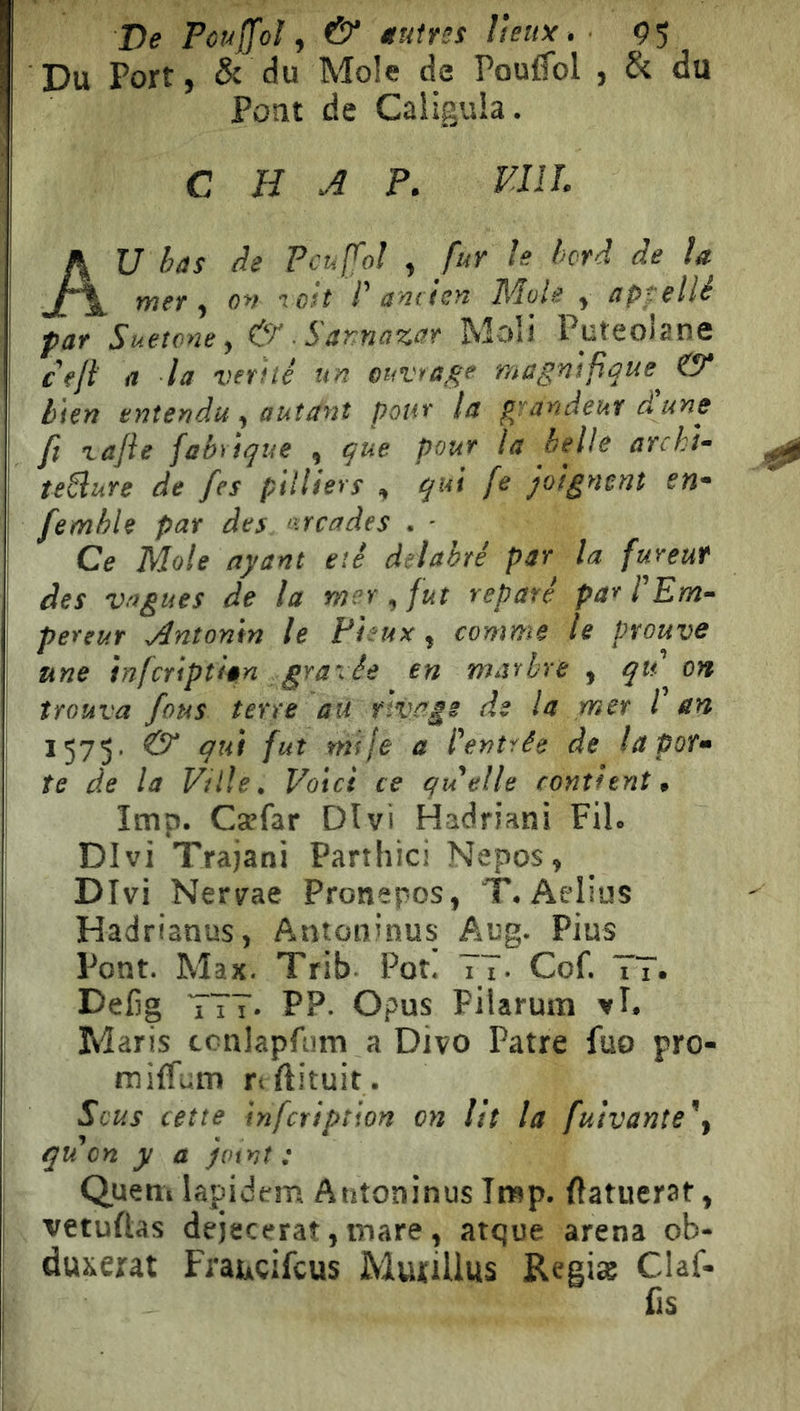 De Pouſſol, & autres lieux. 95
Du Port, & du Mole de Pouſſol , & du
Pont de Caligula.
CHAP. VIII.
AU bas de Pouſſol , ſur le bord de la
mer, on voit l'ancien Mole , appellé
par Suetone, & Sannazar Moli Puteolane
c'eſt a la verité un ouvrage magnifique &
bien entendu, autant pour la grandeur d'une
ſi vaſte fabrique , que pour la belle archi-
tecture de ſes pilliers , qui ſe joignent en-
ſemble par des arcades . -
Ce Mole ayant eté delabré par la fureur
des vagues de la mer, fut reparé par l'Em-
pereur Antonin le Pieux, comme le prouve
une inſcription gravée en marbre , qu' on
trouva ſous terre au rivage de la mer l'an
1575. & qui fut miſe a l'entrée de la por-
te de la Ville. Voici ce qu'elle contient,
Imp. Cæſar DIvi Hadriani Fil.
DIvi Trajani Parthici Nepos,
DIvi Nervae Pronepos, T. Aelius
Hadrianus, Antoninus Aug. Pius
Pont. Max. Trib. Pot. II. Coſ. II.
Deſig III. PP. Opus Pilarum vI.
Maris conlapſum a Divo Patre ſuo pro-
miſſum reſtituit.
Sous cette inſcription on lit la ſuivante',
qu'on y a joint :
Quem lapidem Antoninus Imp. ſtatuerat,
vetuſtas dejecerat, mare, atque arena ob-
duxerat Franciſcus Murillus Regiæ Claſ-
ſis